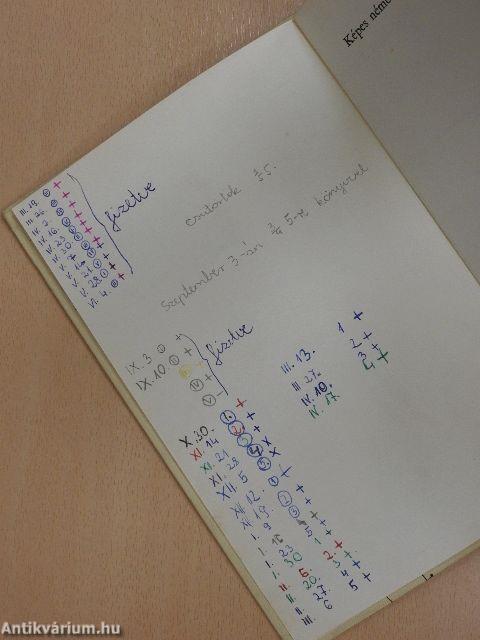 Képes néme
III. 19. +
III. 26. +
IV. 2. +
IV. 16. +
IV. 23. +
IV. 30. +
V. 7. +
V. 14. +
V. 21. +
V. 28. +
VI. 4. +
fizetve
csütörtök 3/4 5.
Szeptember 3-án 3/4 5-re könyvvel
IX. 3 +
IX. 10 +
IV +
V -
fizetve
X. 30. 1. +
XI. 14 2. +
XI. 21 3 +
XI. 28 4 x
XII. 5 5. x
XII. 12. 1 +
XII. 19. 2 +
I. 9 3 +
I. 16 +
I. 23 5 +
I. 30 1 +
II. 6. 2. +
II. 20. 3 +
II. 27. 4 +
III. 6 5 +
III. 13. 1 +
III. 27. 2 +
IV. 10. 3 +
IV. 17. 4 +
Antikvárium.hu